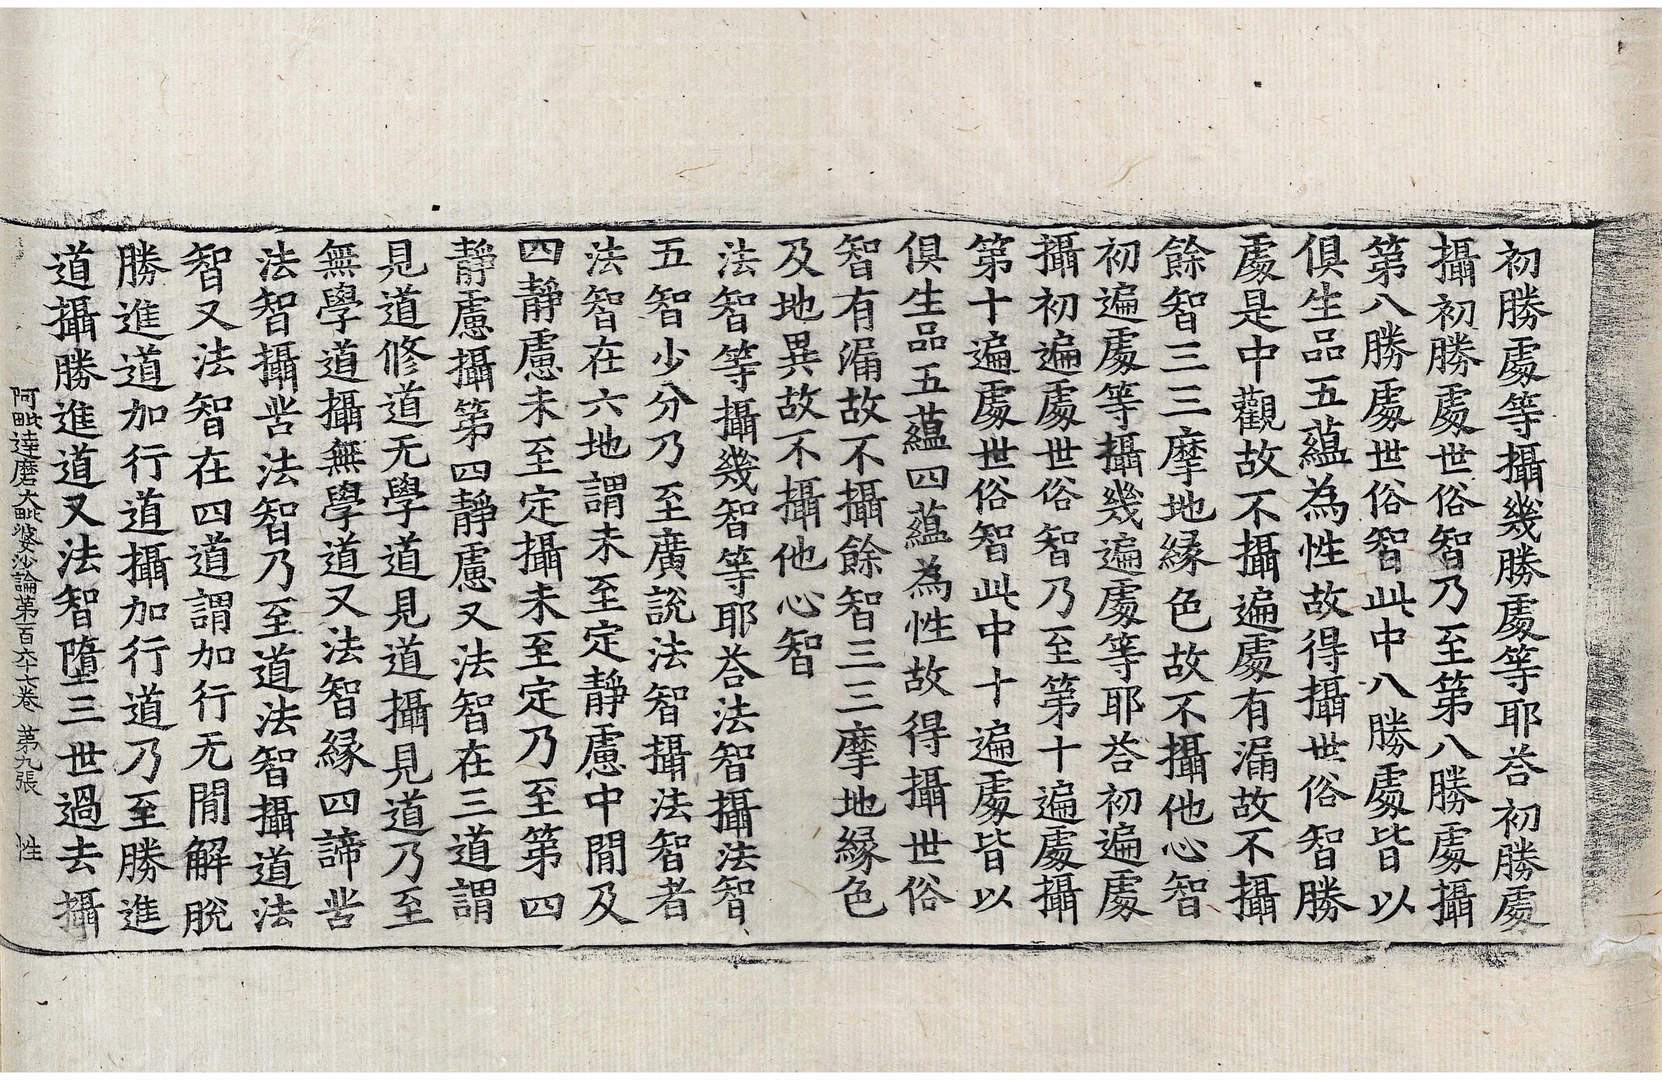 初勝處等攝幾勝處等耶荅初勝處
攝初勝處世俗智乃至第八勝處攝
第八勝處世俗智此中八勝處皆以
俱生品五蘊為性故得攝世俗智勝
處是中觀故不攝遍處有漏故不攝
餘智三三摩地縁色故不攝他心智
初遍處等攝幾遍處等耶荅初遍處
攝初遍處世俗智乃至第十遍處攝
第十遍處世俗智此中十遍處皆以
俱生品五蘊四蘊為性故得攝世俗
智有漏故不攝餘智三三摩地縁色
及地異故不攝他心智
法智等攝幾智等耶荅法智攝法智
五智少分乃至廣說法智攝法智者
法智在六地謂未至定靜慮中閒及
四靜慮未至定攝未至定乃至第四
靜慮攝第四靜慮又法智在三道謂
見道修道无學道見道攝見道乃至
無學道攝無學道又法智縁四諦苦
法智攝苦法智乃至道法智攝道法
智又法智在四道謂加行无閒解脫
勝進道加行道攝加行道乃至勝進
道攝勝進道又法智墮三世過去攝
阿毗達磨大毗婆沙論第一百六十七卷 第九張 性